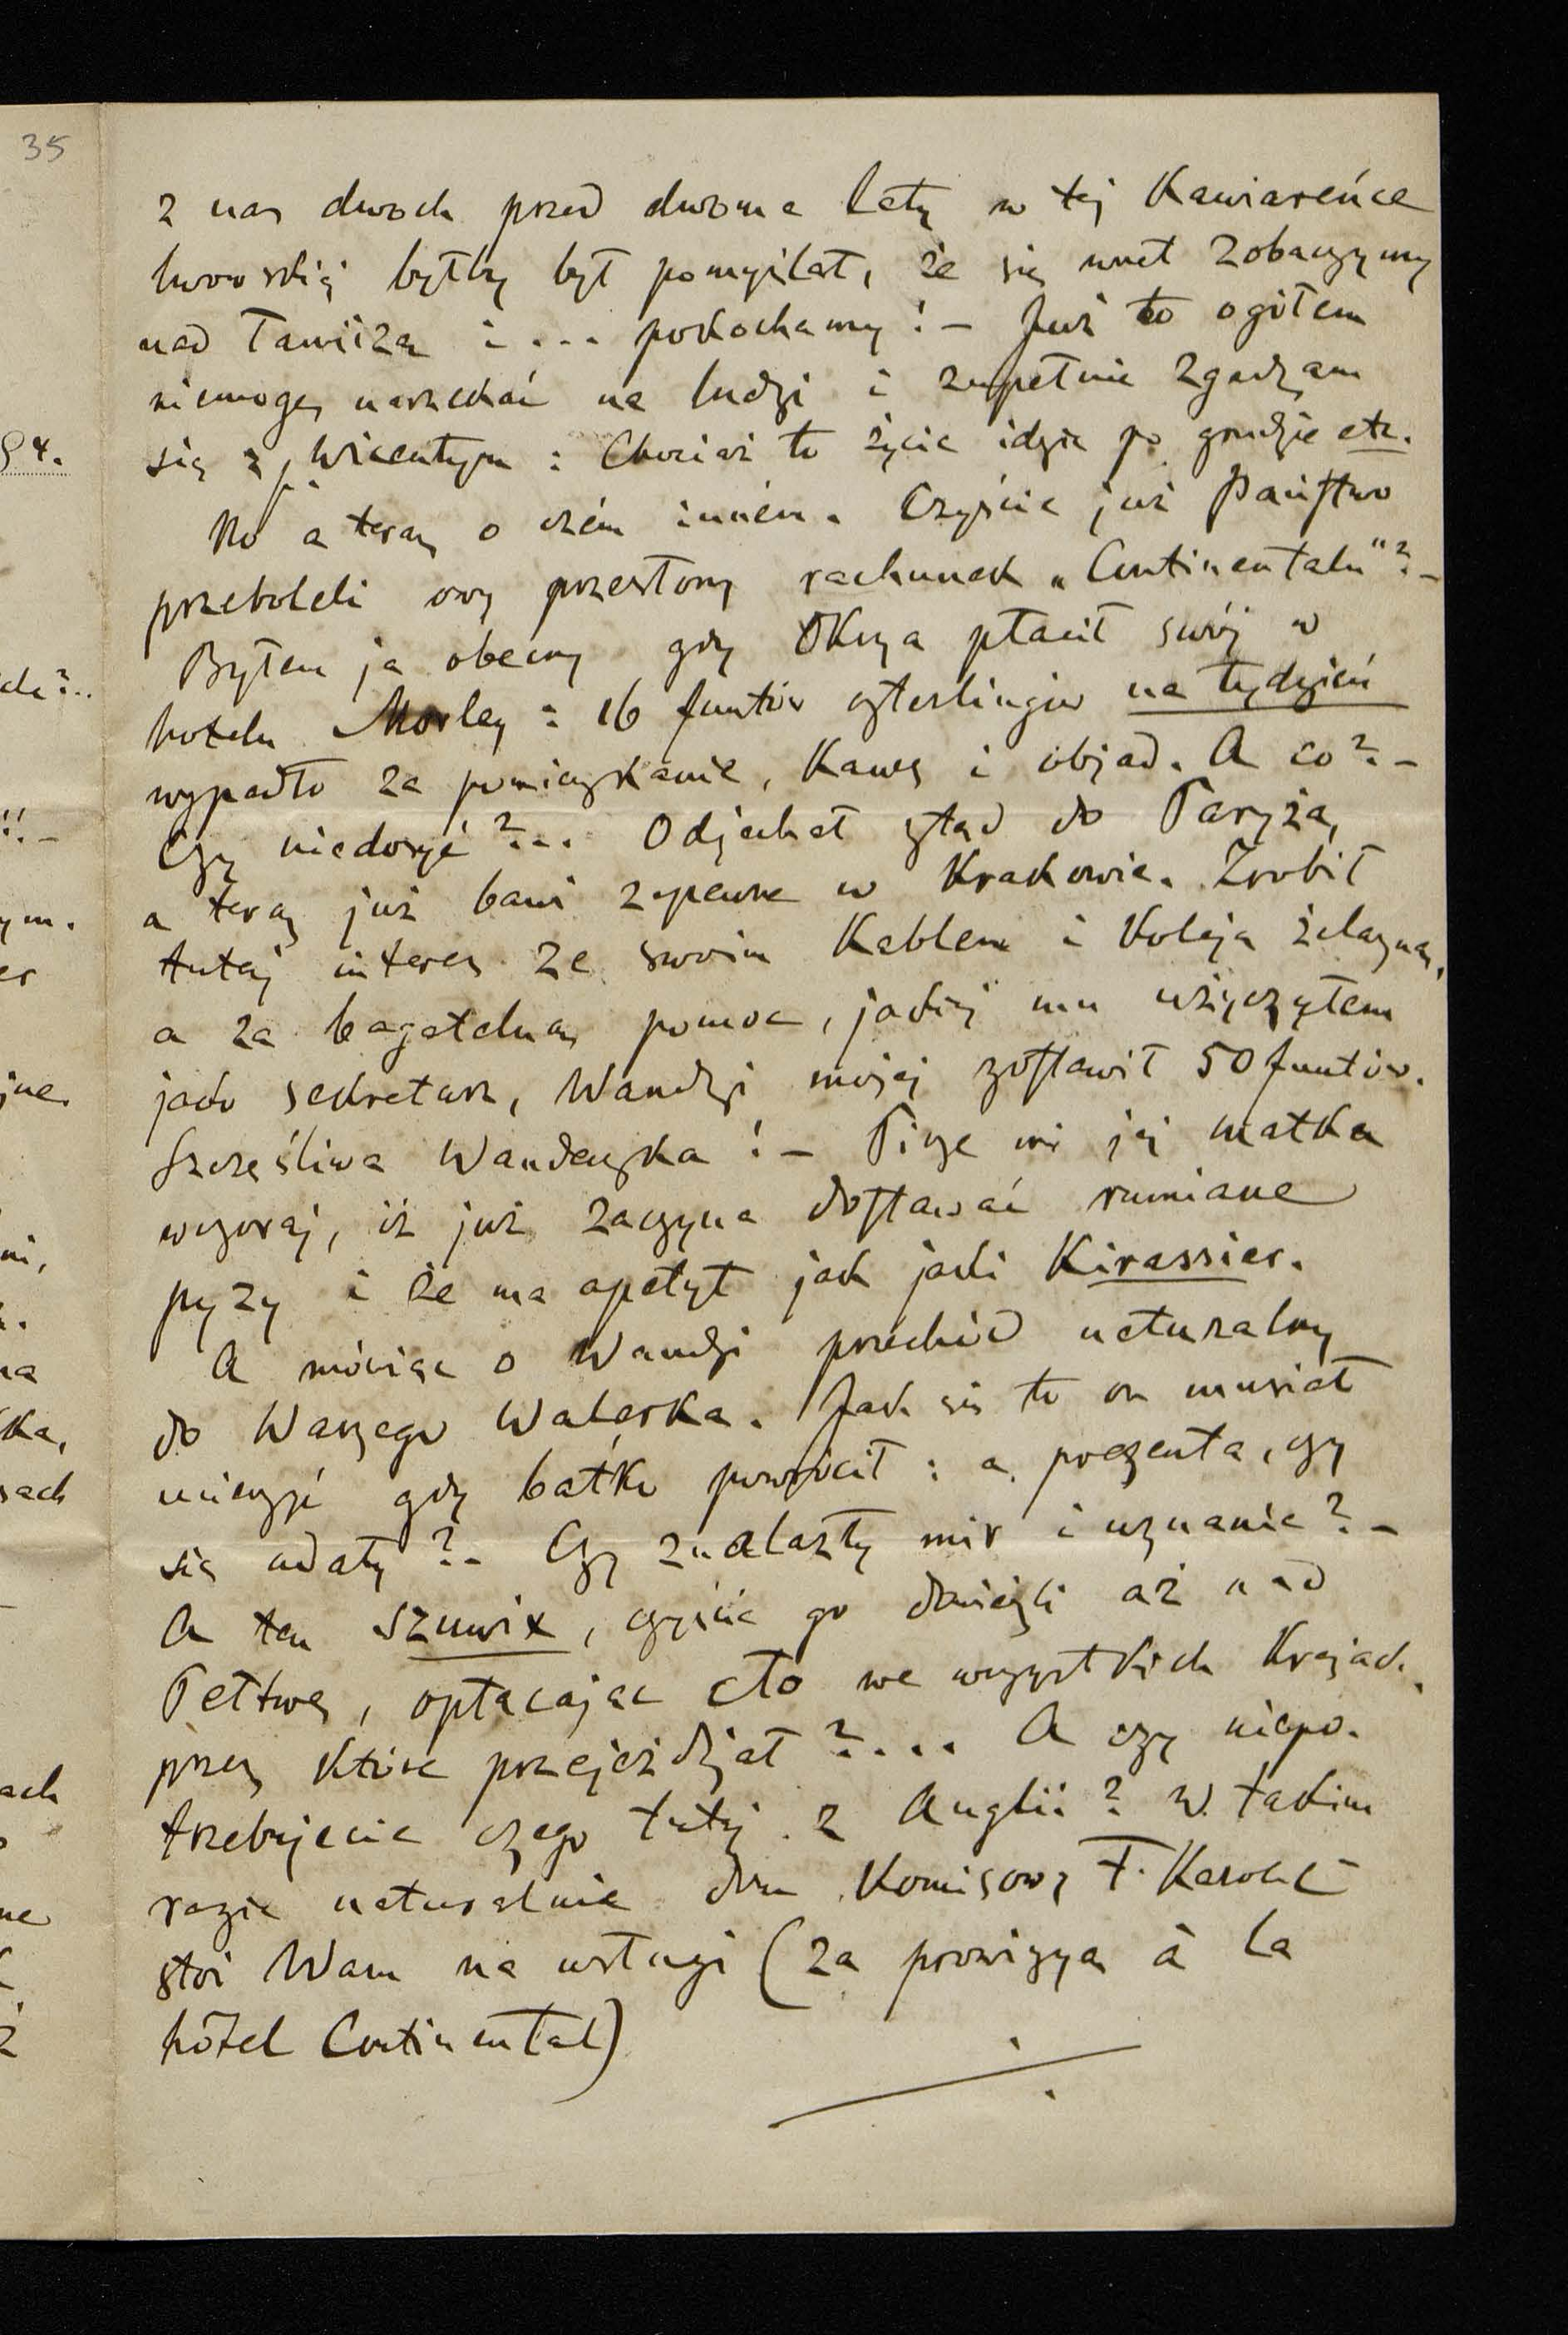 35
z nas dwoch przed dwoma laty w tej Kawiareńce
lwowskiej byłby był pomyślał, że się wnet zobaczymy
nad Tamizą i ... pokochamy! – Już to ogółem
niemogę narzekać na ludzi i zupełnie zgadzam
się z p. Wicentym : Chociaż to życie idzie po grudzie etc.
No a teraz o czém inném. Czyście już Państwo
przeboleli owy przesłony rachunek „Continentalu"? –
Byłem ja obecny gdy Okrza płacił swój w
hotelu Morley : 16 funtów szterlingów na tydzień
wypadło za pomieszkanie, Kawę i objad. A co? –
Czy niedosyć?... Odjechał ztąd do Paryża,
a teraz już bawi zapewne w Krakowie. Zrobił
tutaj interes ze swoim Kablem i Koleją żelazną,
a za bagatelną pomoc, jakiéj mu użyczyłem
jako sekretarz, Wandzi mojej zostawił 50 funtów.
Szczęśliwa Wandeczka! – Pisze mi jéj matka
wczoraj, iż już zaczyna dostawać rumiane
pyzy i że ma apetyt jak jaki Kirassier.
A mówiąc o Wandzi przechód naturalny
do Waszego Walerka. Jak się to on musiał
ucieszyć gdy batko powrócił : a prezenta, czy
się udały? – Czy znalazły mir i uznanie? –
A ten szuwix, czyście go dowieźli aż nad
Pełtwę, opłacając cło we wszystkich Krajach,
przez które przejeżdżał?.... A czy niepo-
trzebujecie czego tutaj z Anglii? W takim
razie naturalnie dom Komisowy F.
stoi Wam na usługi (za prowizyą à la
hôtel Continental)